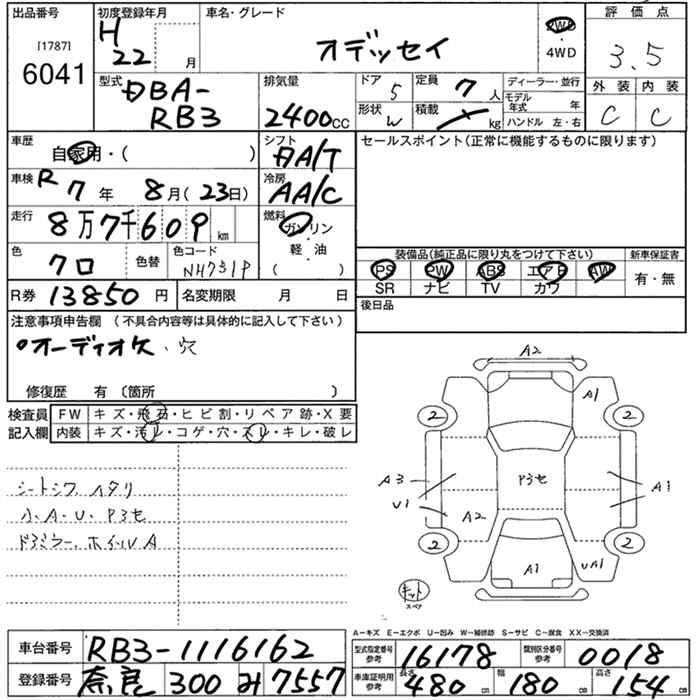 出品番号
[1787]
6041
初度登録年月
H
22 月
車名・グレード
オデッセイ
2WD
・
4WD
評価点
3.5
外装 内装
C C
型式
DBA-
RB3
排気量
2400cc
ドア
5
定員 7人
形状
W
積載 kg
ディーラー・並行
モデル
年式 年
ハンドル 左・右
車歴
自家用・( )
シフト
FA/T
セールスポイント(正常に機能するものに限ります)
車検 R7年 8月(23日)
冷房
AA/C
走行 8万7千609km
燃料
ガソリン
軽・油
( )
色 クロ
色替
色コード
NH731P
装備品(純正品に限り丸をつけて下さい)
PS PW ABS エアB AW
SR ナビ TV カワ
新車保証書
有・無
R券 13850円
名変期限 月 日
後日品
注意事項申告欄 (不具合内容等は具体的に記入して下さい)
オーディオ欠、穴
修復歴 有 〔箇所 〕
検査員
記入欄
FW キズ・飛石・ヒビ割・リペア跡・X要
内装 キズ・汚レ・コゲ・穴・スレ・キレ・破レ
シートシワ、ヘタリ
小、A・U・P3セ
ドアミラー、ホイルA
A2
A1
2 2
A3
U1
P3セ
A1
A2
2 2
A1
UA1
キット
スペア
A-キズ E-エクボ U-凹み W-補修跡 S-サビ C-腐食 XX-交換済
車台番号 RB3-1116162
登録番号 奈良 300 み 7557
型式指定番号
参考
16178
類別区分番号
参考
0018
車庫証明用
参考
長さ 480cm 幅 180cm 高さ 154cm